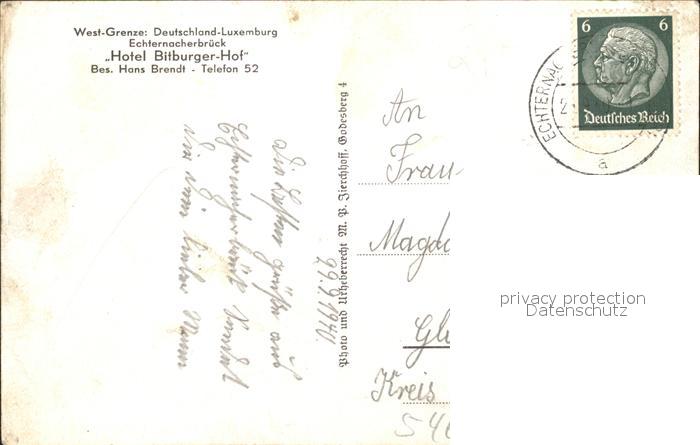 West-Grenze: Deutschland-Luxemburg
Echternacherbrück
„Hotel Bitburger-Hof"
Bes. Hans Brendt - Telefon 52
6 6
Deutsches Reich
ECHTERNAC
a
Photo und Urheberrecht M. P. Zierchhoff, Godesberg 4
29.9.1940.
Die besten Grüße aus
Echternacherbrück sendet
Dir Dein lieber Mann
An
Frau
Magda
Gl
Kreis
54
privacy protection
Datenschutz